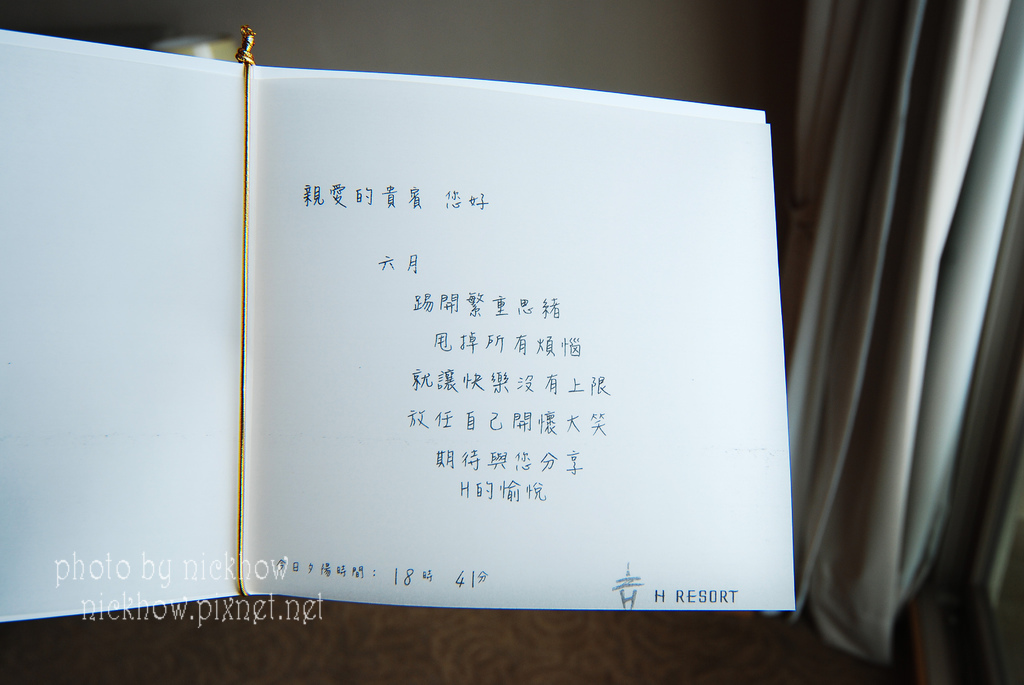 親愛的貴賓 您好
六月
踢開繁重思緒
甩掉所有煩惱
就讓快樂沒有上限
放任自己開懷大笑
期待與您分享
H的愉悅
今日夕陽時間： 18時 41分
H RESORT
photo by nickhow
nickhow.pixnet.net